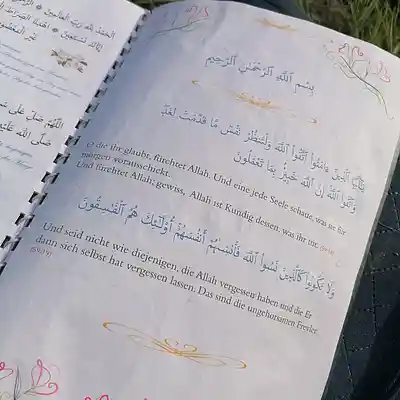 الحمد لله رب العالمين
إياك نستعين
اللهم صل على
بِسْمِ ٱللَّهِ ٱلرَّحْمَٰنِ ٱلرَّحِيمِ
يَٰٓأَيُّهَا ٱلَّذِينَ ءَامَنُوا۟ ٱتَّقُوا۟ ٱللَّهَ وَلْتَنظُرْ نَفْسٌ مَّا قَدَّمَتْ لِغَدٍ
وَٱتَّقُوا۟ ٱللَّهَ إِنَّ ٱللَّهَ خَبِيرٌۢ بِمَا تَعْمَلُونَ
O die ihr glaubt, fürchtet Allah. Und eine jede Seele schaue, was sie für
morgen vorausschickt.
Und fürchtet Allah; gewiss, Allah ist Kundig dessen, was ihr tut.
وَلَا تَكُونُوا۟ كَٱلَّذِينَ نَسُوا۟ ٱللَّهَ فَأَنسَىٰهُمْ أَنفُسَهُمْ أُو۟لَٰٓئِكَ هُمُ ٱلْفَٰسِقُونَ
Und seid nicht wie diejenigen, die Allah vergessen haben und die Er
dann sich selbst hat vergessen lassen. Das sind die ungehorsamen Frevler.